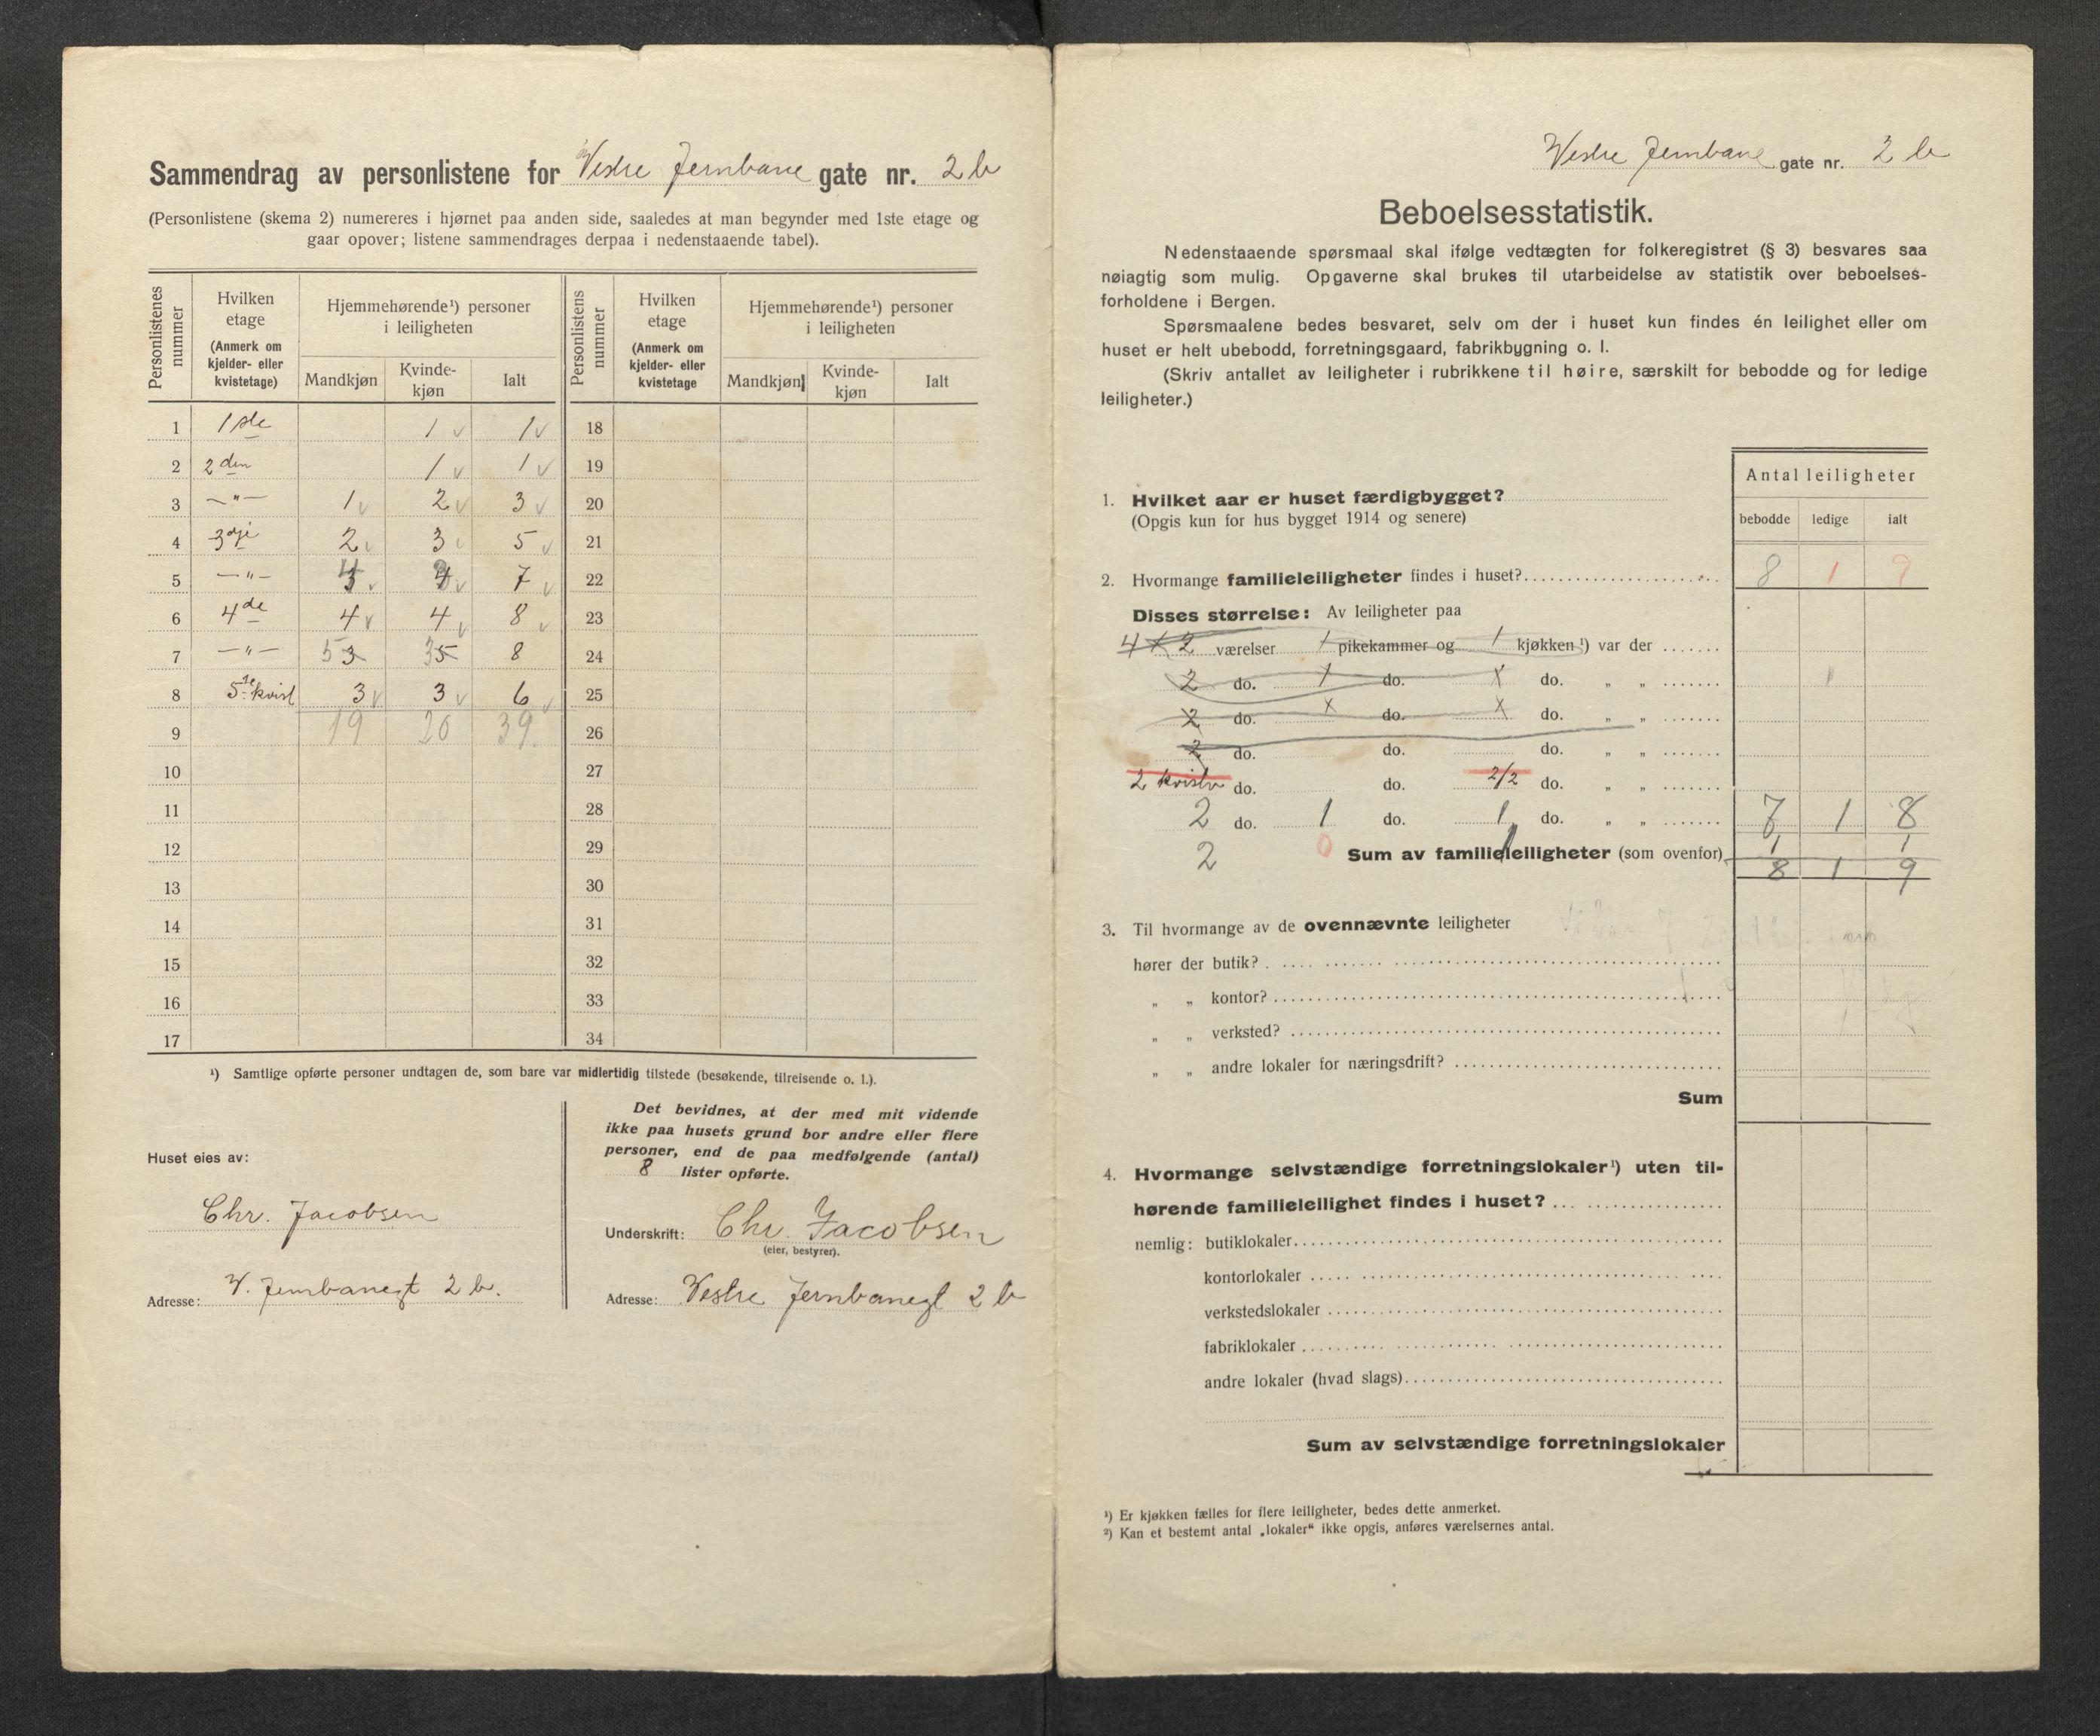 Sammendrag av personlistene for Vestre Jernbane gate nr. 2 b
(Personlistene (skema 2) numereres i hjørnet paa anden side, saaledes at man begynder med 1ste etage og
gaar opover; listene sammendrages derpaa i nedenstaaende tabel).
Personlistenes nummer
Hvilken etage (Anmerk om kjelder- eller kvistetage)
Hjemmehørende¹) personer i leiligheten
Mandkjøn Kvinde-kjøn Ialt
Personlistens nummer
Hvilken etage (Anmerk om kjelder- eller kvistetage
Hjemmehørende¹) personer i leiligheten
Mandkjøn Kvinde-kjøn Ialt
1 1ste 1 v 1 v 18
2 2den 1 v 1 v 19
3 —"— 1 v 2 v 3 v 20
4 3dje 2 v 3 v 5 v 21
5 —"— 4 v 3 v 7 v 22
6 4de 4 v 4 v 8 v 23
7 —"— 5 3 3 5 8 24
8 5te kvist 3 v 3 v 6 v 25
9 19 20 39 26
10 27
11 28
12 29
13 30
14 31
15 32
16 33
17 34
¹) Samtlige opførte personer undtagen de, som bare var midlertidig tilstede (besøkende, tilreisende o. l.).
Huset eies av:
Chr. Jacobsen
Adresse: V. Jernbanegt 2 b.
Det bevidnes, at der med mit vidende
ikke paa husets grund bor andre eller flere
personer, end de paa medfølgende (antal)
8 lister opførte.
Underskrift: Chr. Jacobsen
(eier, bestyrer).
Adresse: Vestre Jernbanegt 2 b
Vestre Jernbane gate nr. 2 b
Beboelsesstatistik.
Nedenstaaende spørsmaal skal ifølge vedtægten for folkeregistret (§ 3) besvares saa
nøiagtig som mulig. Opgaverne skal brukes til utarbeidelse av statistik over beboelses-
forholdene i Bergen.
Spørsmaalene bedes besvaret, selv om der i huset kun findes én leilighet eller om
huset er helt ubebodd, forretningsgaard, fabrikbygning o. l.
(Skriv antallet av leiligheter i rubrikkene til høire, særskilt for bebodde og for ledige
leiligheter.)
Antal leiligheter
bebodde ledige ialt
1. Hvilket aar er huset færdigbygget?
(Opgis kun for hus bygget 1914 og senere)
2. Hvormange familieleiligheter findes i huset? 8 1 9
Disses størrelse: Av leiligheter paa
4 x 2 værelser 1 pikekammer og 1 kjøkken¹) var der
2 do. x do. x do. „ „
2 do. x do. x do. „ „
2 do. do. do. „ „
2 kvistv do. do. 2/2 do. „ „
2 do. 1 do. 1 do. „ „ 7 1 8
2 0 1 Sum av familieleiligheter (som ovenfor) 1 1
8 1 9
3. Til hvormange av de ovennævnte leiligheter
hører der butik?
„ „ kontor?
„ „ verksted?
„ „ andre lokaler for næringsdrift?
Sum
4. Hvormange selvstændige forretningslokaler¹) uten til-
hørende familieleilighet findes i huset?
nemlig: butiklokaler
kontorlokaler
verkstedslokaler
fabriklokaler
andre lokaler (hvad slags)
Sum av selvstændige forretningslokaler
¹) Er kjøkken fælles for flere leiligheter, bedes dette anmerket.
²) Kan et bestemt antal „lokaler“ ikke opgis, anføres værelsernes antal.